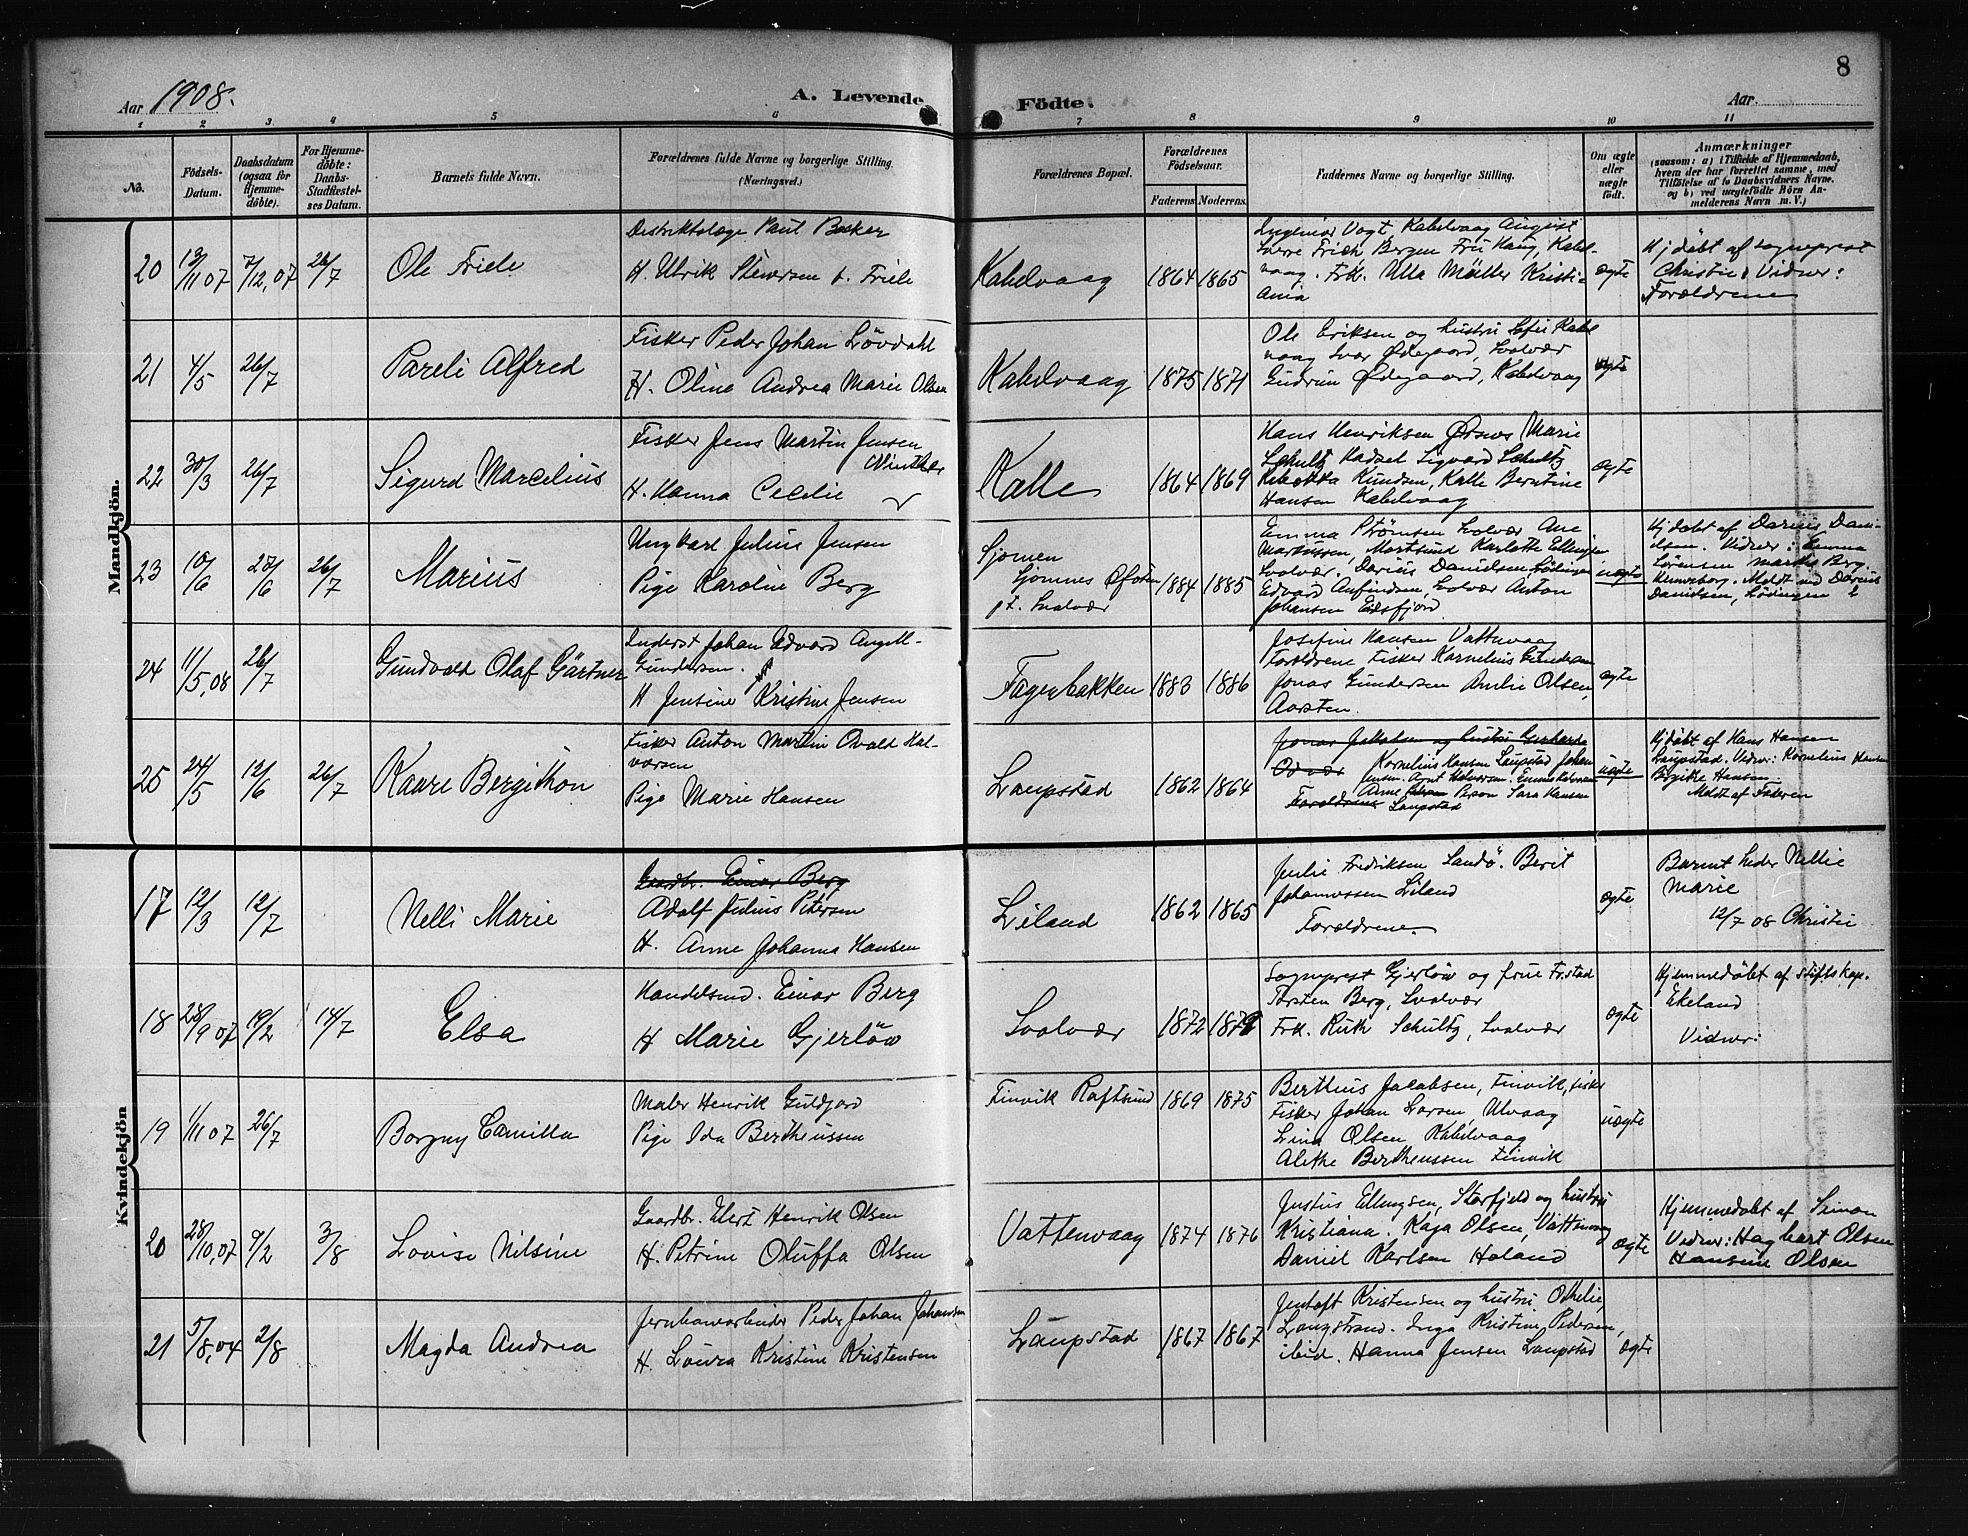 Aar 1908.
A. Levende Födte.
Aar
8
1 2 3 4 5 6 7 8 9 10 11
No.
Födsels-Datum.
Daabsdatum (ogsaa for Hjemme-döbte).
For Hjemme-döbte: Daabs-Stadfæstel-ses Datum.
Barnets fulde Navn.
Forældrenes fulde Navne og borgerlige Stilling. (Næringsvei.)
Forældrenes Bopæl.
Forældrenes Födselsaar.
Faderens Moderens
Faddernes Navne og borgerlige Stilling.
Om ægte eller uægte födt.
Anmærkninger
(saasom: a) i Tilfælde af Hjemmedaab, hvem der har forrettet samme, med Tilföielse af to Daabsvidners Navne, og b) ved uægtefödte Börn An-melderens Navn m. V.)
Mandkjön.
20 13/11 07 7/12, 07 26/7 Ole Friele
Distriktslæge Paul Backer
H. Ulrik f. Friele
Kabelvaag 1864 1865
Ingeniør Vogt Kabelvaag August
Friele Bergen Fru Haug, Kabel-
vaag. Frk. Ulla Müller Kristi-
ania
ægte
Hj døbt af sogneprest
Christie. Vidner:
Forældrene
21 4/5 26/7 Pareli Alfred
Fisker Peder Johan Lövdahl
H. Oline Andrea Marie Olsen
Kabelvaag 1875 1871
Ole Eriksen og hustru Sofie Kabel
vaag Ødegaard, Svolvær
Gudrun Ødegaard, Kabelvaag
ægte
22 30/3 26/7 Sigurd Marcelius
Fisker Jens Martin Jensen
H. Hanna Cecelie
Kalle 1864 1869
Hans Henriksen Ørsnes Marie
Schultz Hadsel Sigvard Schultz
Knudsen, Kalle Berntine
Hansen Kabelvaag
ægte
23 10/6 27/6 26/7 Marius
Ungkarl Julius Jensen
Pige Karoline Berg
Gjomnes Ofoten
pt. Svolvær
1884 1885
Emma Strømsen Svolvær Ane
Martinssen, Mortsund Karlotte Ellingsen
Svolvær. Darius Danielsen, Lødingen
Edvard Anfindsen, Svolvær Anton
Johansen Eidsfjord
uægte
Hj døbt af Darius Dani-
elsen. Vidner: Emma
Sörensen Marka Berg.
Henneborg. Meldt ved Darius
Danielsen, Lödingen
24 11/5, 08 26/7 Gundvald Olaf Gärtner
Inderst Johan Edvard Angell
Gundersen.
H Jensine Kristine Jensen
Fagerbakken 1883 1886
Josefine Hansen Vattervaag
Forældrene Fisker Kornelius Gundersen
Jonas Gundersen Amelie Olsen,
Aarsten.
ægte
25 24/5 12/6 26/7 Kaare Bergithon
Fisker Anton Martin Osvald Hal-
vorsen
Pige Marie Hansen
Laupstad 1862 1864
Jonas Jakobsen og hustru Gerharda
Kornelius Hansen Laupstad Johan
Jensen. Arnt Halvorsen. Emma Halvorsen
Anne Person Sara Hansen
Forældrene Laupstad
uægte
Hj døbt af Hans Hansen
Laupstad. Vidner: Kornelius Hansen
Birgitte Hansen
Meldt af Faderen
Kvindekjön
17 12/3 12/7 Nelli Marie
Gaardbr. Einar Berg
Adolf Julius Petersen
H. Anne Johanna Hansen
Liland 1862 1865
Julie Fredriksen Sandö. Berit
Johannessen Liland
Forældrene
ægte
Barnet heder Nellie
Marie
12/7 08 Christie
18 28/9 07 19/2 14/7 Elsa
Handelsmd. Einar Berg
H Marie Gjerlöw
Svolvær 1872
Sogneprest Gjerlöw og frue
Torsten Berg, Svolvær
Frk. Ruth Schultz, Svolvær
ægte
Hjemmedöbt af stiftskap.
Ekeland
Vidner:
19 1/11 07 26/7 Borgny Camilla
Maler Henrik Guldjord
Pige Ida Bertheussen
Finvik Raftsund 1869 1875
Bertheus Jacobsen, Finvik, fisker
Fisker Johan Larsen, Ulvaag
Lina Olsen, Kabelvaag
Alethe Bertheussen Finvik
uægte
20 28/10, 07 9/2 3/8 Lovise Nilsine
Gaardbr. Elert Henrik Olsen
H. Petrine Oluffa Olsen
Vattervaag 1874 1876
Justus Ellingsen, Storfjeld og hustru
Kristiana. Kaja Olsen, Vattervaag
Daniel Karlsen Holand
ægte
Hjemmedøbt af Simon
Vidner: Hagbart Olsen
Hansine Olsen
21 5/8, 04 2/8 Magda Andrea
Jernbanearbeider Peder Johan Johansen
H. Loura Kristine Kristensen
Laupstad 1867 1867
Jentoft Kristensen og hustru Othelie,
Langstrand. Inga Kristine Pedersen,
ibid. Hanna Jensen Laupstad
ægte